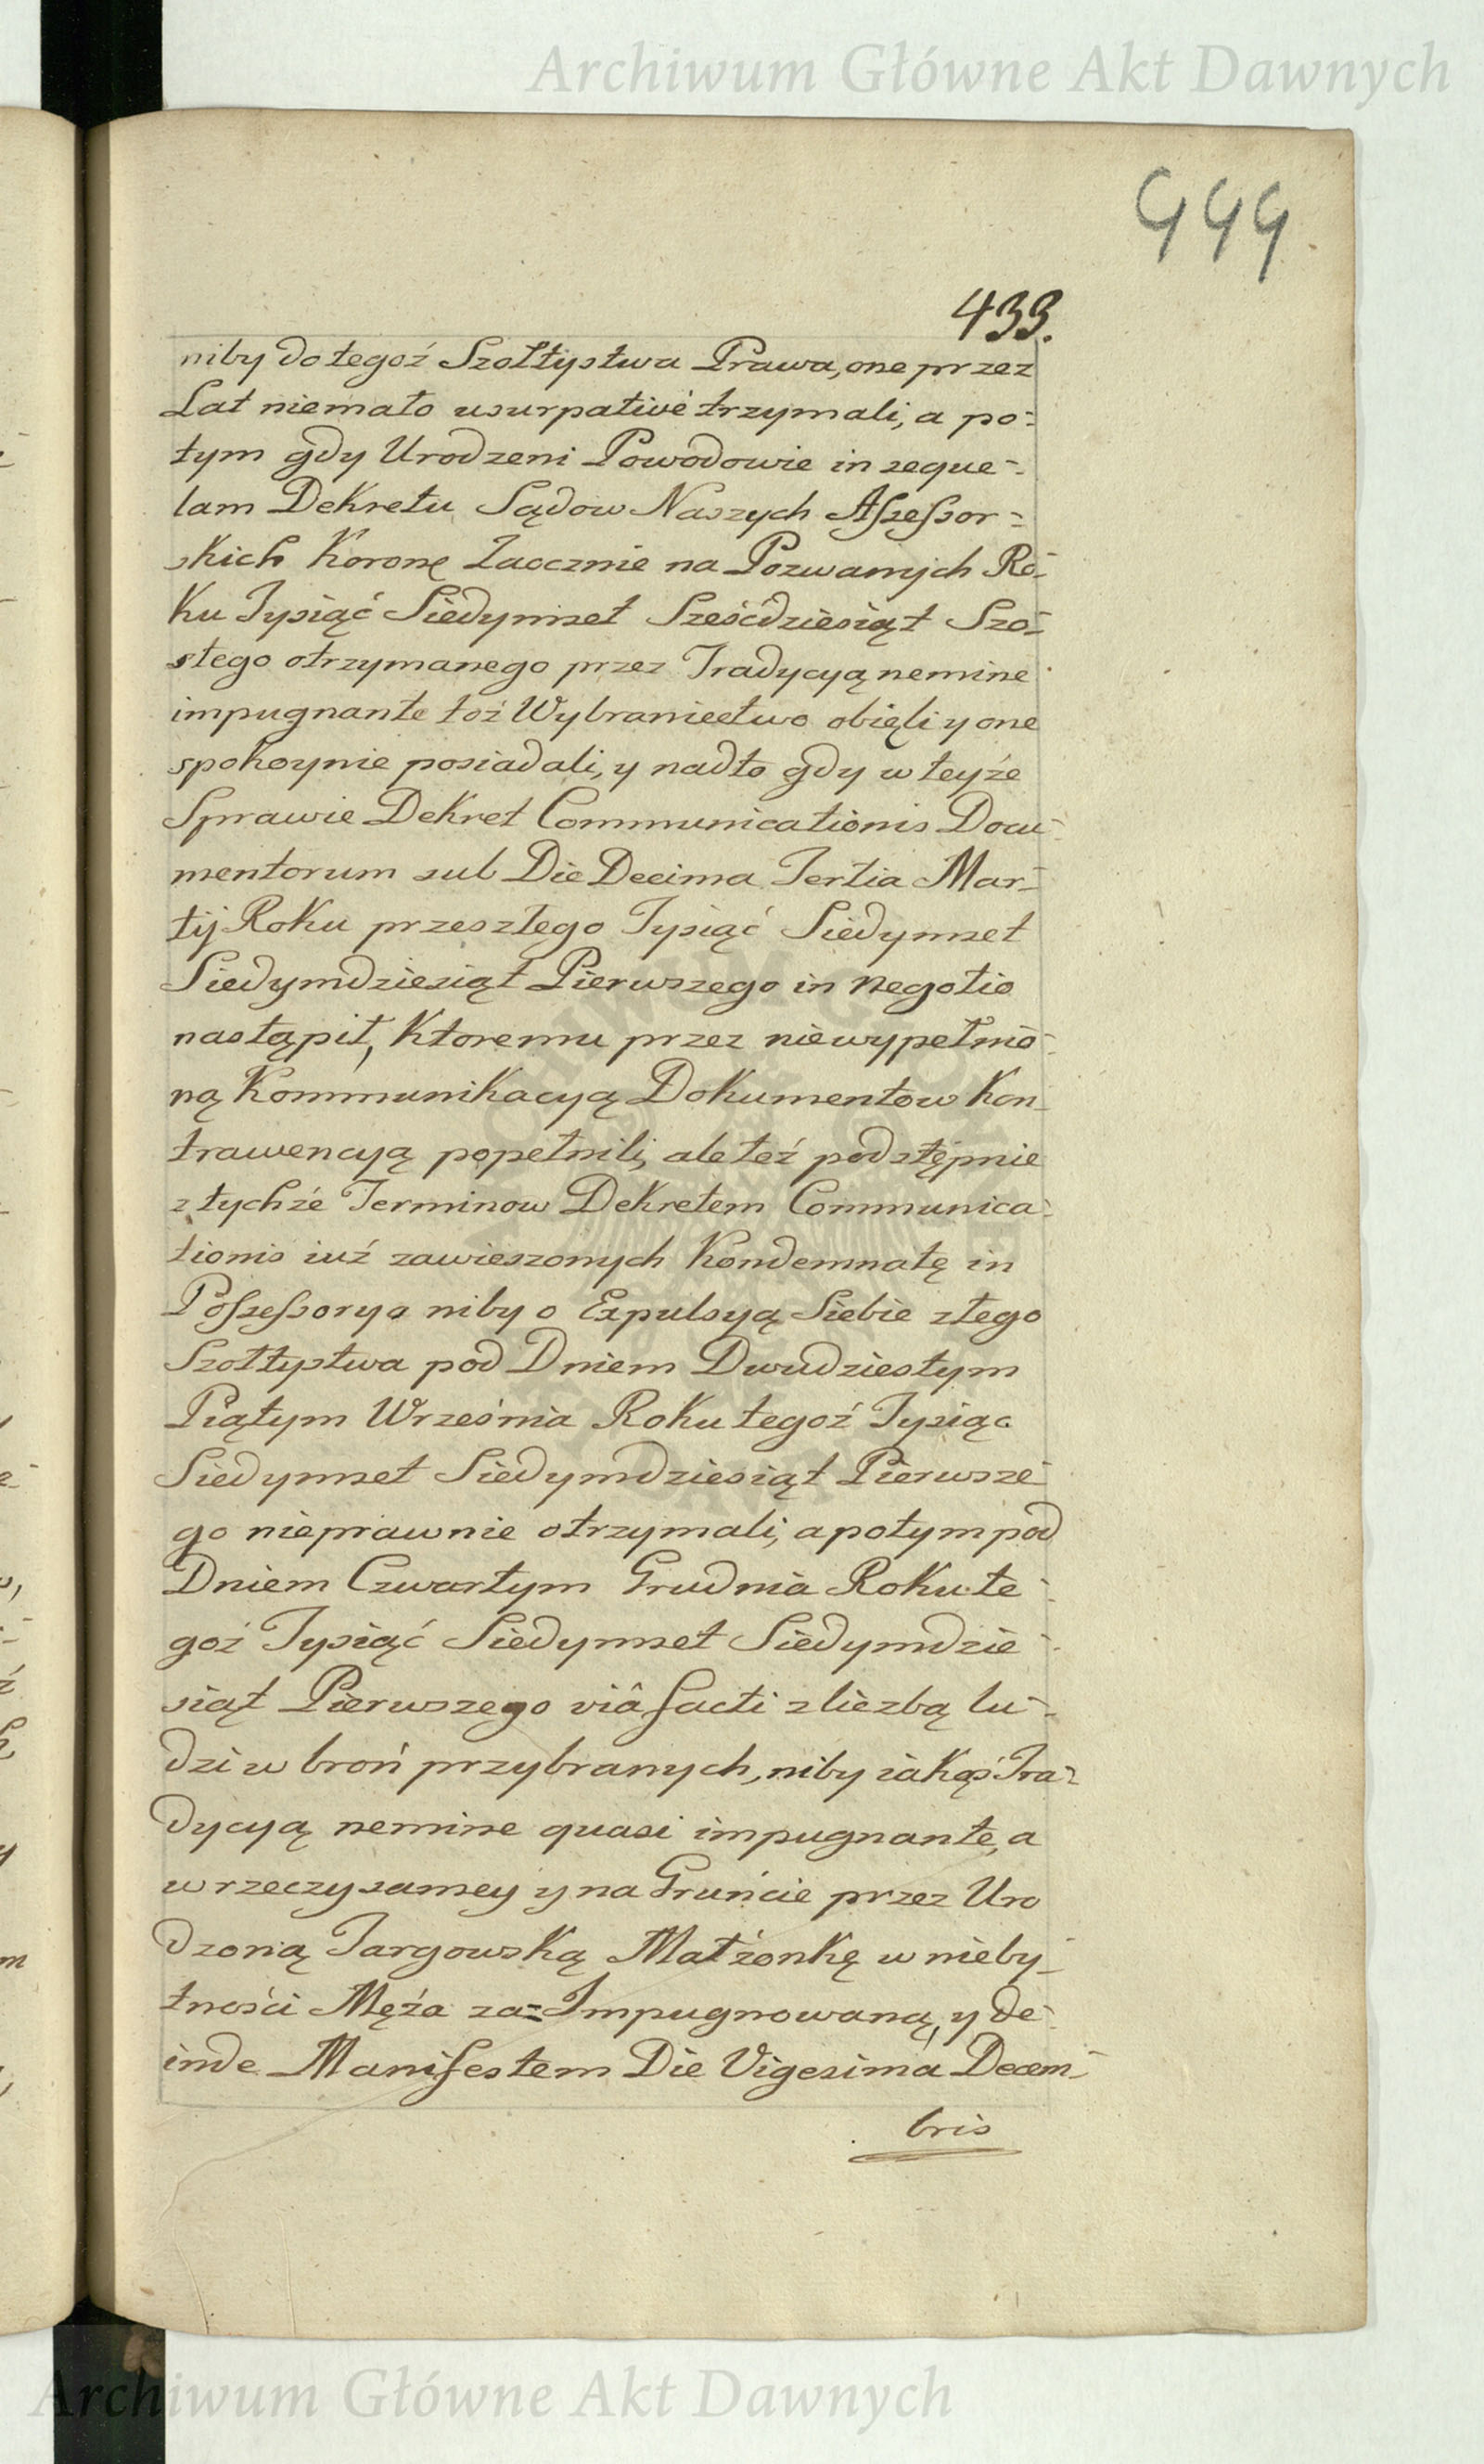 Archiwum Główne Akt Dawnych
444
433.
niby do tegoż Szołtystwa Prawa, one przez
Lat niemało usurpativè trzymali, a po=
tym gdy Urodzeni Powodowie in seque=
lam Dekretu Sądow Naszych Aſseſsor=
skich Koronę Zaocznie na Pozwanych Ro=
ku Tysiąć Siedymset Sześćdziesiąt Szo=
stego otrzymanego przez Tradycyą nemine
impugnante toż Wybraniectwo obięli y one
spokoynie posiadali, y nadto gdy w teyże
Sprawie Dekret Communicationis Docu=
mentorum sub Die Decima Tertia Mar=
tij Roku przeszłego Tysiąć Siedymset
Siedymdziesiąt Pierwszego in Negotio
nastąpił, Ktoremu przez niewypełnio=
ną Kommunikacyą Dokumentow Kon=
trawencyą popełnili, ale też podstępnie
z tychże Terminow Dekretem Communica=
tionis iuż zawieszonych Kondemnatę in
Poſseſsorya niby o Expulsyą Siebie z tego
Szołtystwa pod Dniem Dwudziestym
Piątym Września Roku tegoż Tysiąc
Siedymset Siedymdziesiąt Pierwsze=
go nieprawnie otrzymali, a potym pod
Dniem Czwartym Grudnia Roku te=
goż Tysiąć Siedymset Siedymdzie=
siąt Pierwszego viâ facti z liczbą lu=
dzi w broń przybranych, niby iakąś Tra=
dycyą nemine quasi impugnante, a
w rzeczy samey y na Gruńcie przez Uro
dzoną Targowską Małżonkę w nieby=
tności Męża za= Impugnowaną, y de=
inde Manifestem Die Vigesima Decem=
bris
Archiwum Główne Akt Dawnych